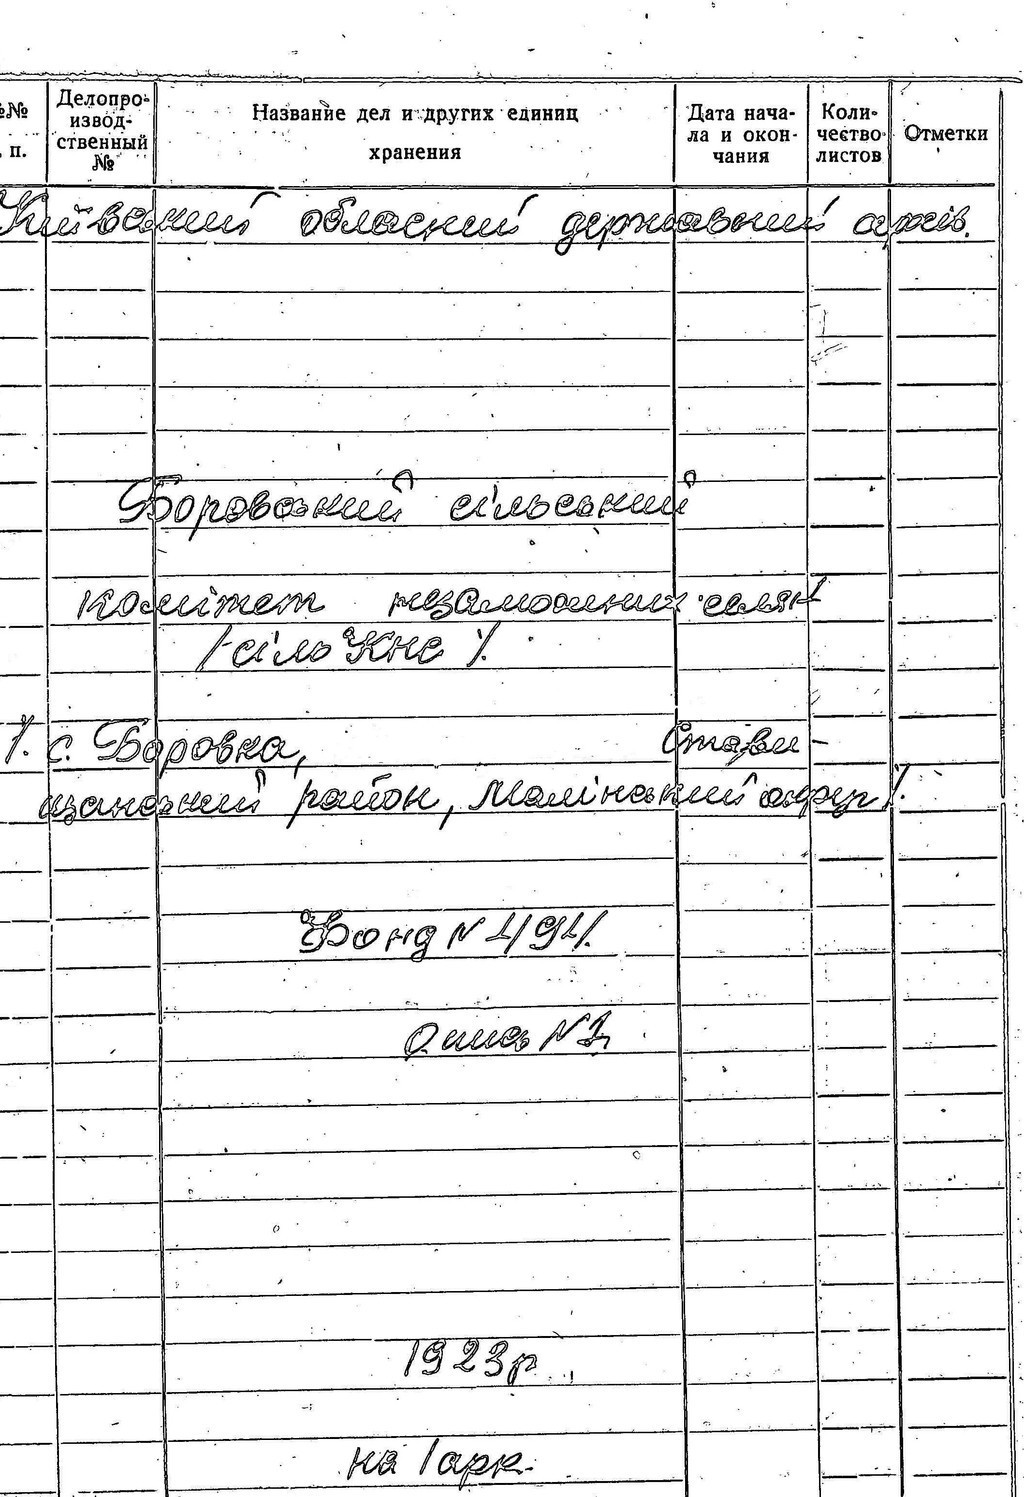 №№ п.
Делопро-
извод-
ственный
№
Название дел и других единиц
хранения
Дата нача-
ла и окон-
чания
Коли-
чество
листов
Отметки
Київський обласний державний архів.
Боровський сільський
комітет незаможних селян
/сільКНС/.
/. с. Боровка, Стави-
щанський район, Малінський округ/.
Фонд N
Опись N 1
1923р.
на 1 арк.